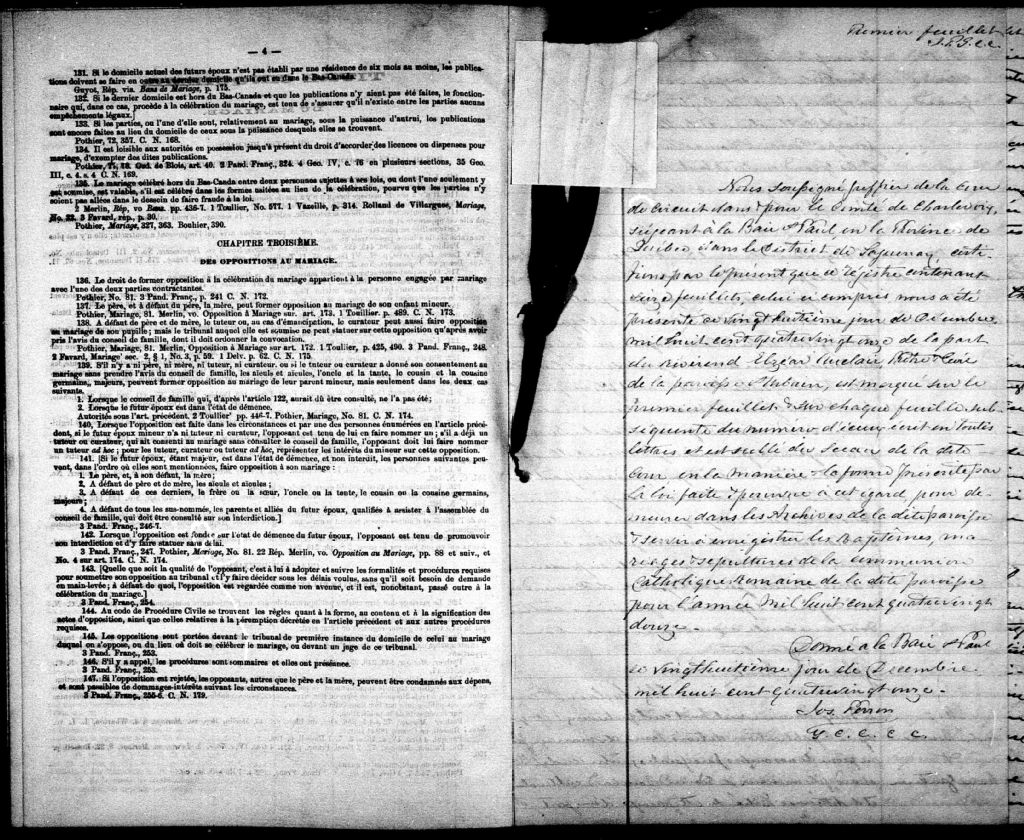 — 4 —
131. Si le domicile actuel des futurs époux n'est pas établi par une résidence de six mois au moins, les publica-
tions doivent se faire en outre au dernier domicile qu'ils ont eu dans le Bas-Canada.
Guyot, Rép. via. Bans de Mariage, p. 175.
132. Si le dernier domicile est hors du Bas-Canada et que les publications n'y aient pas été faites, le fonction-
naire qui, dans ce cas, procède à la célébration du mariage, est tenu de s'assurer qu'il n'existe entre les parties aucuns
empêchements légaux.]
133. Si les parties, ou l'une d'elle, sont, relativement au mariage, sous la puissance d'autrui, les publications
sont encore faites au lieu du domicile de ceux sous la puissance desquels elles se trouvent.
Pothier, 72, 357. C. N. 168.
134. Il est loisible aux autorités en possession jusqu'à présent du droit d'accorder des licences ou dispenses pour
mariage, d'exempter des dites publications.
Pothier, 77, 78. Ord. de Blois, art. 40. 2 Pand. Franç., 324. 4 Geo. IV, c. 76 en plusieurs sections, 35 Geo.
III, c. 4. s. 4 C. N. 169.
135. Le mariage célébré hors du Bas-Canada entre deux personnes sujettes à ses lois, ou dont l'une seulement y
est soumise, est valable, s'il est célébré dans les formes usitées au lieu de la célébration, pourvu que les parties n'y
soient pas allées dans le dessein de faire fraude à la loi.
2 Merlin, Rép, vo Bans. pp. 436-7. 1 Toullier, No. 577. 1 Vazeille, p. 314. Rolland de Villargues, Mariage,
No. 22. 3 Favard, rép., p. 30.
Pothier, Mariage, 327, 363. Bouhier, 390.
CHAPITRE TROISIÈME.
DES OPPOSITIONS AU MARIAGE.
136. Le droit de former opposition à la célébration du mariage appartient à la personne engagée par mariage
avec l'une des deux parties contractantes.
Pothier, No. 81. 3 Pand. Franç., p. 241 C. N. 172.
137. Le père, et à défaut du père, la mère, peut former opposition au mariage de son enfant mineur.
Pothier, Mariage, 81. Merlin, vo. Opposition à Mariage sur. art. 173. 1 Touillier. p. 489. C. N. 173.
138. A défaut de père et de mère, le tuteur, ou, au cas d'émancipation, le curateur peut aussi faire opposition
au mariage de son pupille; mais le tribunal auquel elle est soumise ne peut statuer sur cette opposition qu'après avoir
pris l'avis du conseil de famille, dont il doit ordonner la convocation.
Pothier, Mariage, 81. Merlin, Opposition à Mariage sur art. 172. 1 Toullier, p. 425, 490. 3 Pand. Franç., 248.
2 Favard, Mariage' sec. 2, § 1, No. 3, p. 59. 1 Delv. p. 62. C. N. 175.
139. S'il n'y a ni père, ni mère, ni tuteur, ni curateur. ou si le tuteur ou curateur a donné son consentement au
mariage sans prendre l'avis du conseil de famille, les aïeuls et aïeules, l'oncle et la tante, le cousin et la cousine
germains, majeurs, peuvent former opposition au mariage de leur parent mineur, mais seulement dans les deux cas
suivants.
1. Lorsque le conseil de famille qui, d'après l'article 122, aurait dû être consulté, ne l'a pas été;
2. Lorsque le futur époux est dans l'état de démence.
Autorités sous l'art. précédent. 2 Toullier' pp. 446-7. Pothier, Mariage, No. 81. C. N. 174.
140. Lorsque l'opposition est faite dans les circonstances et par une des personnes énumérées en l'article précé-
dent, si le futur époux mineur n'a ni tuteur ni curateur, l'opposant est tenu de lui en faire nommer un; s'il a déjà un
tuteur ou curateur, qui ait consenti au mariage sans consulter le conseil de famille, l'opposant doit lui faire nommer
un tuteur ad hoc; pour les tuteur, curateur ou tuteur ad hoc, représenter les intérêts du mineur sur cette opposition.
141. [Si le futur époux, étant majeur, est dans l'état de démence, et non interdit, les personnes suivantes peu-
vent, dans l'ordre où elles sont mentionnées, faire opposition à son mariage :
1. Le père, et, à son défaut, la mère;
2. A défaut de père et de mère, les aïeuls et aïeules;
3. A défaut de ces derniers, le frère ou la sœur, l'oncle ou la tente, le cousin ou la cousine germains,
majeurs;
4. A défaut de tous les sus-nommés, les parents et alliés du futur époux, qualifiés à assister à l'assemblée du
conseil de famille, qui doit être consulté sur son interdiction.]
3 Pand. Franç., 246-7.
142. Lorsque l'opposition est fondée sur l'état de démence du futur époux, l'opposant est tenu de promouvoir
son interdiction et d'y faire statuer sans délai.
3 Pand. Franç., 247. Pothier, Mariage, No. 81. 22 Rép. Merlin, vo. Opposition au Mariage, pp. 88 et suiv., et
No. 4 sur art. 174. C. N. 174.
143. [Quelle que soit la qualité de l'opposant, c'est à lui à adopter et suivre les formalités et procédures requises
pour soumettre son opposition au tribunal et l'y faire décider sous les délais voulus, sans qu'il soit besoin de demande
en main-levée; à défaut de quoi, l'opposition est regardée comme non avenue, et il est, nonobstant, passé outre à la
célébration du mariage.]
3 Pand. Franç., 254.
144. Au code de Procédure Civile se trouvent les règles quant à la forme, au contenu et à la signification des
actes d'opposition, ainsi que celles relatives à la péremption décrétée en l'article précédent et aux autres procédures
requises.
145. Les oppositions sont portées devant le tribunal de première instance du domicile de celui au mariage
duquel on s'oppose, ou du lieu où doit se célébrer le mariage, ou devant un juge de ce tribunal.
3 Pand. Franç., 253.
146. S'il y a appel, les procédures sont sommaires et elles ont préséance.
3 Pand. Franç., 253.
147. Si l'opposition est rejetée, les opposants, autres que le père et la mère, peuvent être condamnés aux dépens,
et sont passibles de dommages-intérêts suivant les circonstances.
3 Pand. Franç., 255-6. C. N. 179.
Premier feuillet
J.P.G.C.C.
Nous soussigné Greffier de la Cour
de circuit dans & pour le Comté de Charlevoix,
siégeant à la Baie St Paul en la Province de
Québec, dans le District de Saguenay, certi-
fions par le présent que ce registre contenant
seize feuillets, celui ci compris nous a été
présenté ce vingt huitième jour de Décembre
mil huit cent quatre vingt onze de la part
du révérend Elzéar Auclair Ptre & Curé
de la paroisse St Urbain, est marqué sur le
premier feuillet & sur chaque feuillet sub-
séquents du numéro d'iceux écrit en toutes
lettres et est scellé du Sceau de la dite
Cour en la manière & la forme présente par
la loi faite & pourvue à cet égard pour de-
meurer dans les Archives de la dite paroisse
& servir à enregistrer les Baptêmes, ma
riages & sépultures de la communion
Catholique Romaine de la dite paroisse
pour l'année Mil huit cent quatre vingt
douze.
Donné à la Baie St Paul
ce vingt huitième jour de Décembre
mil huit cent quatre vingt onze.
Jos. Perron
G. C. C. C. C.